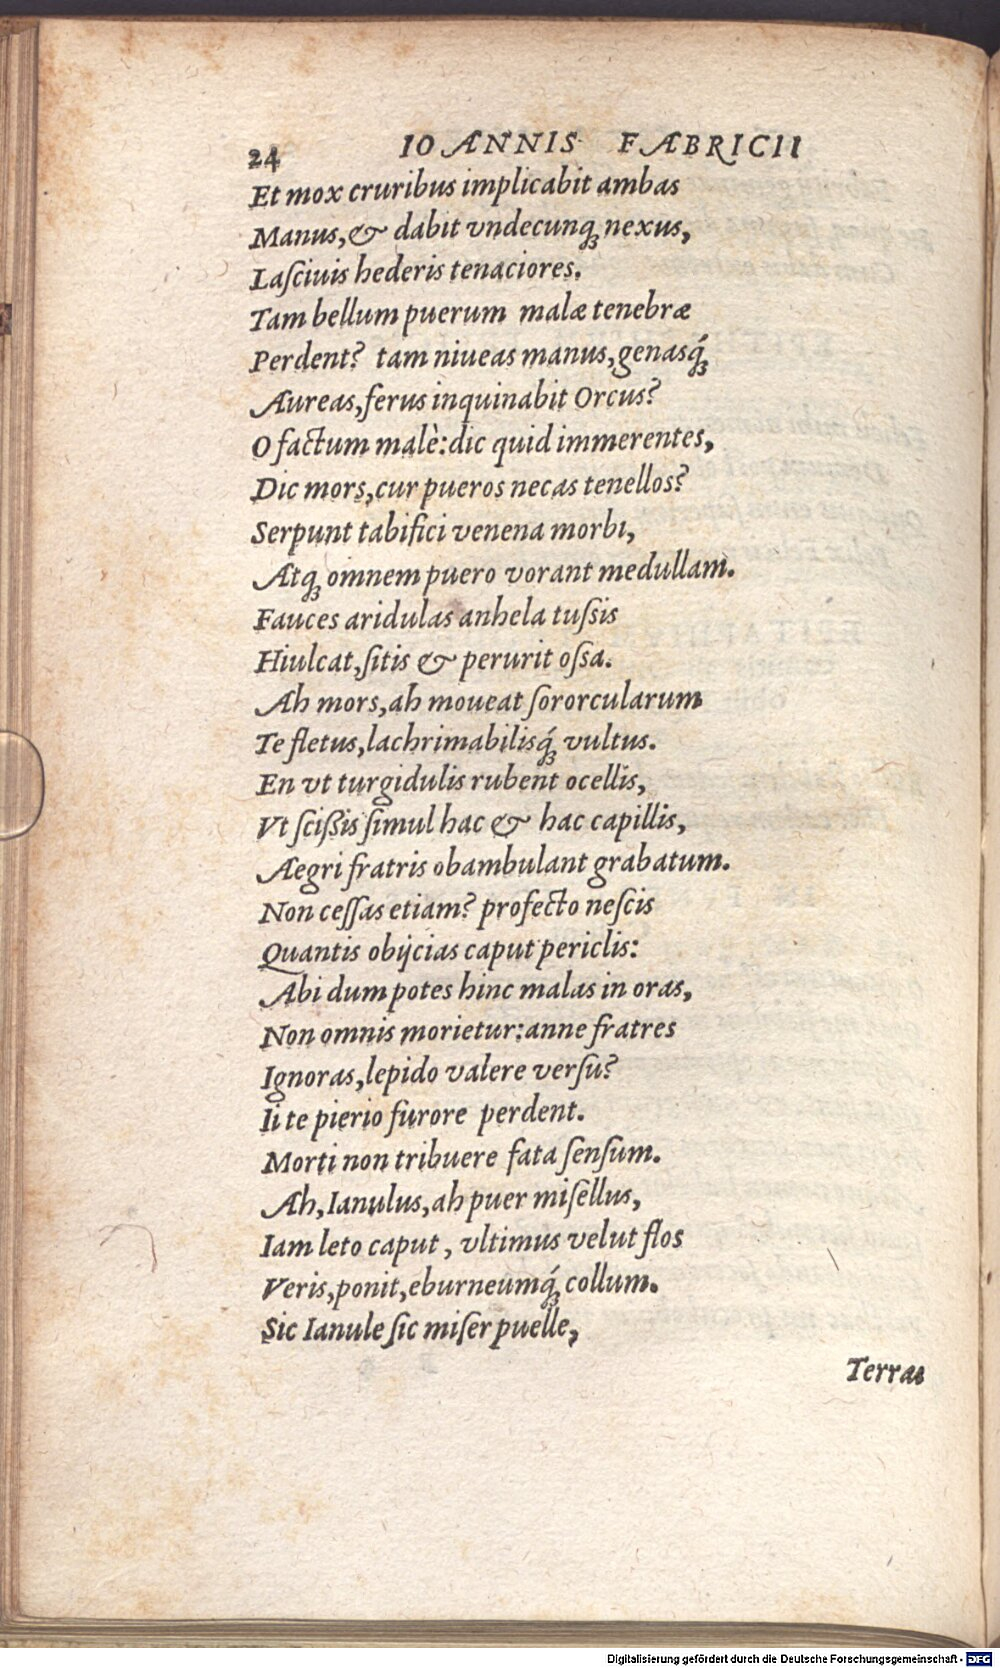 24 IOANNIS FABRICII
Et mox cruribus implicabit ambas
Manus, & dabit vndecunq; nexus,
Laſciuis hederis tenaciores.
Tam bellum puerum malæ tenebræ
Perdent? tam niueas manus, genasq́;
Aureas, ferus inquinabit Orcus?
O factum malè: dic quid immerentes,
Dic mors, cur pueros necas tenellos?
Serpunt tabifici venena morbi,
Atq; omnem puero vorant medullam.
Fauces aridulas anhela tuſsis
Hiulcat, ſitis & perurit oſsa.
Ah mors, ah moueat ſororcularum
Te fletus, lachrimabilisq́; vultus.
En vt turgidulis rubent ocellis,
Vt ſcißis ſimul hac & hac capillis,
Aegri fratris obambulant grabatum.
Non ceſſas etiam? profecto neſcis
Quantis obijcias caput periclis:
Abi dum potes hinc malas in oras,
Non omnis morietur: anne fratres
Ignoras, lepido valere verſu?
Ii te pierio furore perdent.
Morti non tribuere fata ſenſum.
Ah, Ianulus, ah puer miſellus,
Iam leto caput, vltimus velut flos
Veris, ponit, eburneumq́; collum.
Sic Ianule ſic miſer puelle,
Terrae
Digitalisierung gefördert durch die Deutsche Forschungsgemeinschaft - DFG